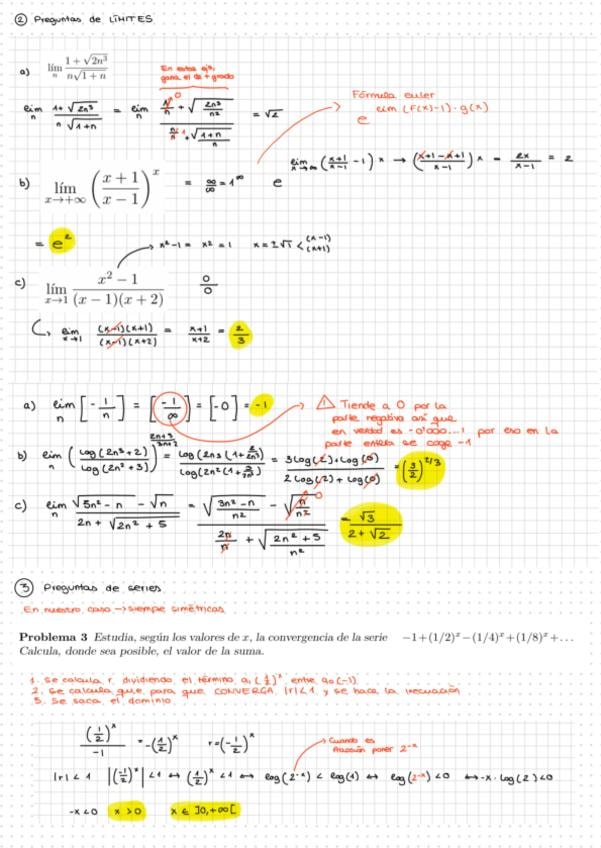 ② Preguntas de LÍMITES
a) lím n (1+√2n³)/(n√1+n)
En estos ejs, gana el de + grado
lim n (1+√2n³)/(n√1+n) = lim n (1/n + √(2n³/n²))/(n/n · √(1+n)/n) = √2
Fórmula euler
e lim (f(x)-1)·g(x)
b) lím x→+∞ ((x+1)/(x−1))^x = ∞/∞ = 1^∞ e lim x→∞ ((x+1)/(x-1) -1) x → ((x+1-x+1)/(x-1)) x = 2x/(x-1) = 2
= e²
x²-1 = x² = 1 x = ±√1 < (x-1) (x+1)
c) lím x→1 (x² − 1)/((x − 1)(x + 2)) 0/0
lim x→1 ((x-1)(x+1))/((x-1)(x+2)) = (x+1)/(x+2) = 2/3
a) lim n [-1/n] = [-1/∞] = [-0] = -1
⚠ Tiende a 0 por la
parte negativa así que
en verdad es -0'000...1 por eso en la
parte entera se coge -1
b) lim n (log(2n³+2)/log(2n²+3))^((2n+3)/(3n+2)) = log(2n³(1+2/2n³))/log(2n²(1+3/2n²)) = (3log(2)+log(0))/(2log(2)+log(0)) = (3/2)^(2/3)
c) lim n (√3n²-n - √n)/(2n+√2n²+5) = (√((3n²-n)/n²) - √(n/n²))/(2n/n + √((2n²+5)/n²)) = √3/(2+√2)
③ Preguntas de series
En nuestro caso → siempre simétricas
Problema 3 Estudia, según los valores de x, la convergencia de la serie −1+(1/2)^x −(1/4)^x +(1/8)^x +...
Calcula, donde sea posible, el valor de la suma.
1. Se calcula r dividiendo el término a₁ (1/2)^x entre a₀ (-1)
2. Se calcula que para que CONVERGA |r|<1 y se hace la inecuación
3. Se saca el dominio
(1/2)^x/-1 = -(1/2)^x r = (-1/2)^x
Cuando es fracción poner 2^-x
|r| < 1 |(-1/2)^x| < 1 ↔ (1/2)^x < 1 ↔ log(2^-x) < log(1) ↔ log(2^-x) < 0 ↔ -x·log(2) < 0
-x < 0 x > 0 x ∈ ]0,+∞[